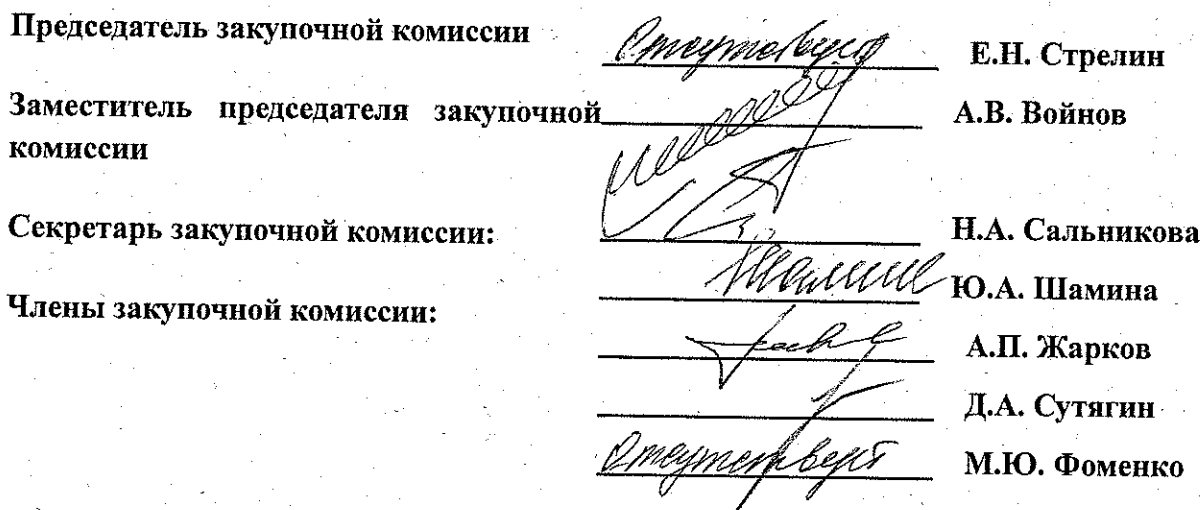 Председатель закупочной комиссии отсутствует Е.Н. Стрелин
Заместитель председателя закупочной А.В. Войнов
комиссии
Секретарь закупочной комиссии: Н.А. Сальникова
Ю.А. Шамина
Члены закупочной комиссии:
А.П. Жарков
Д.А. Сутягин
отсутствует М.Ю. Фоменко